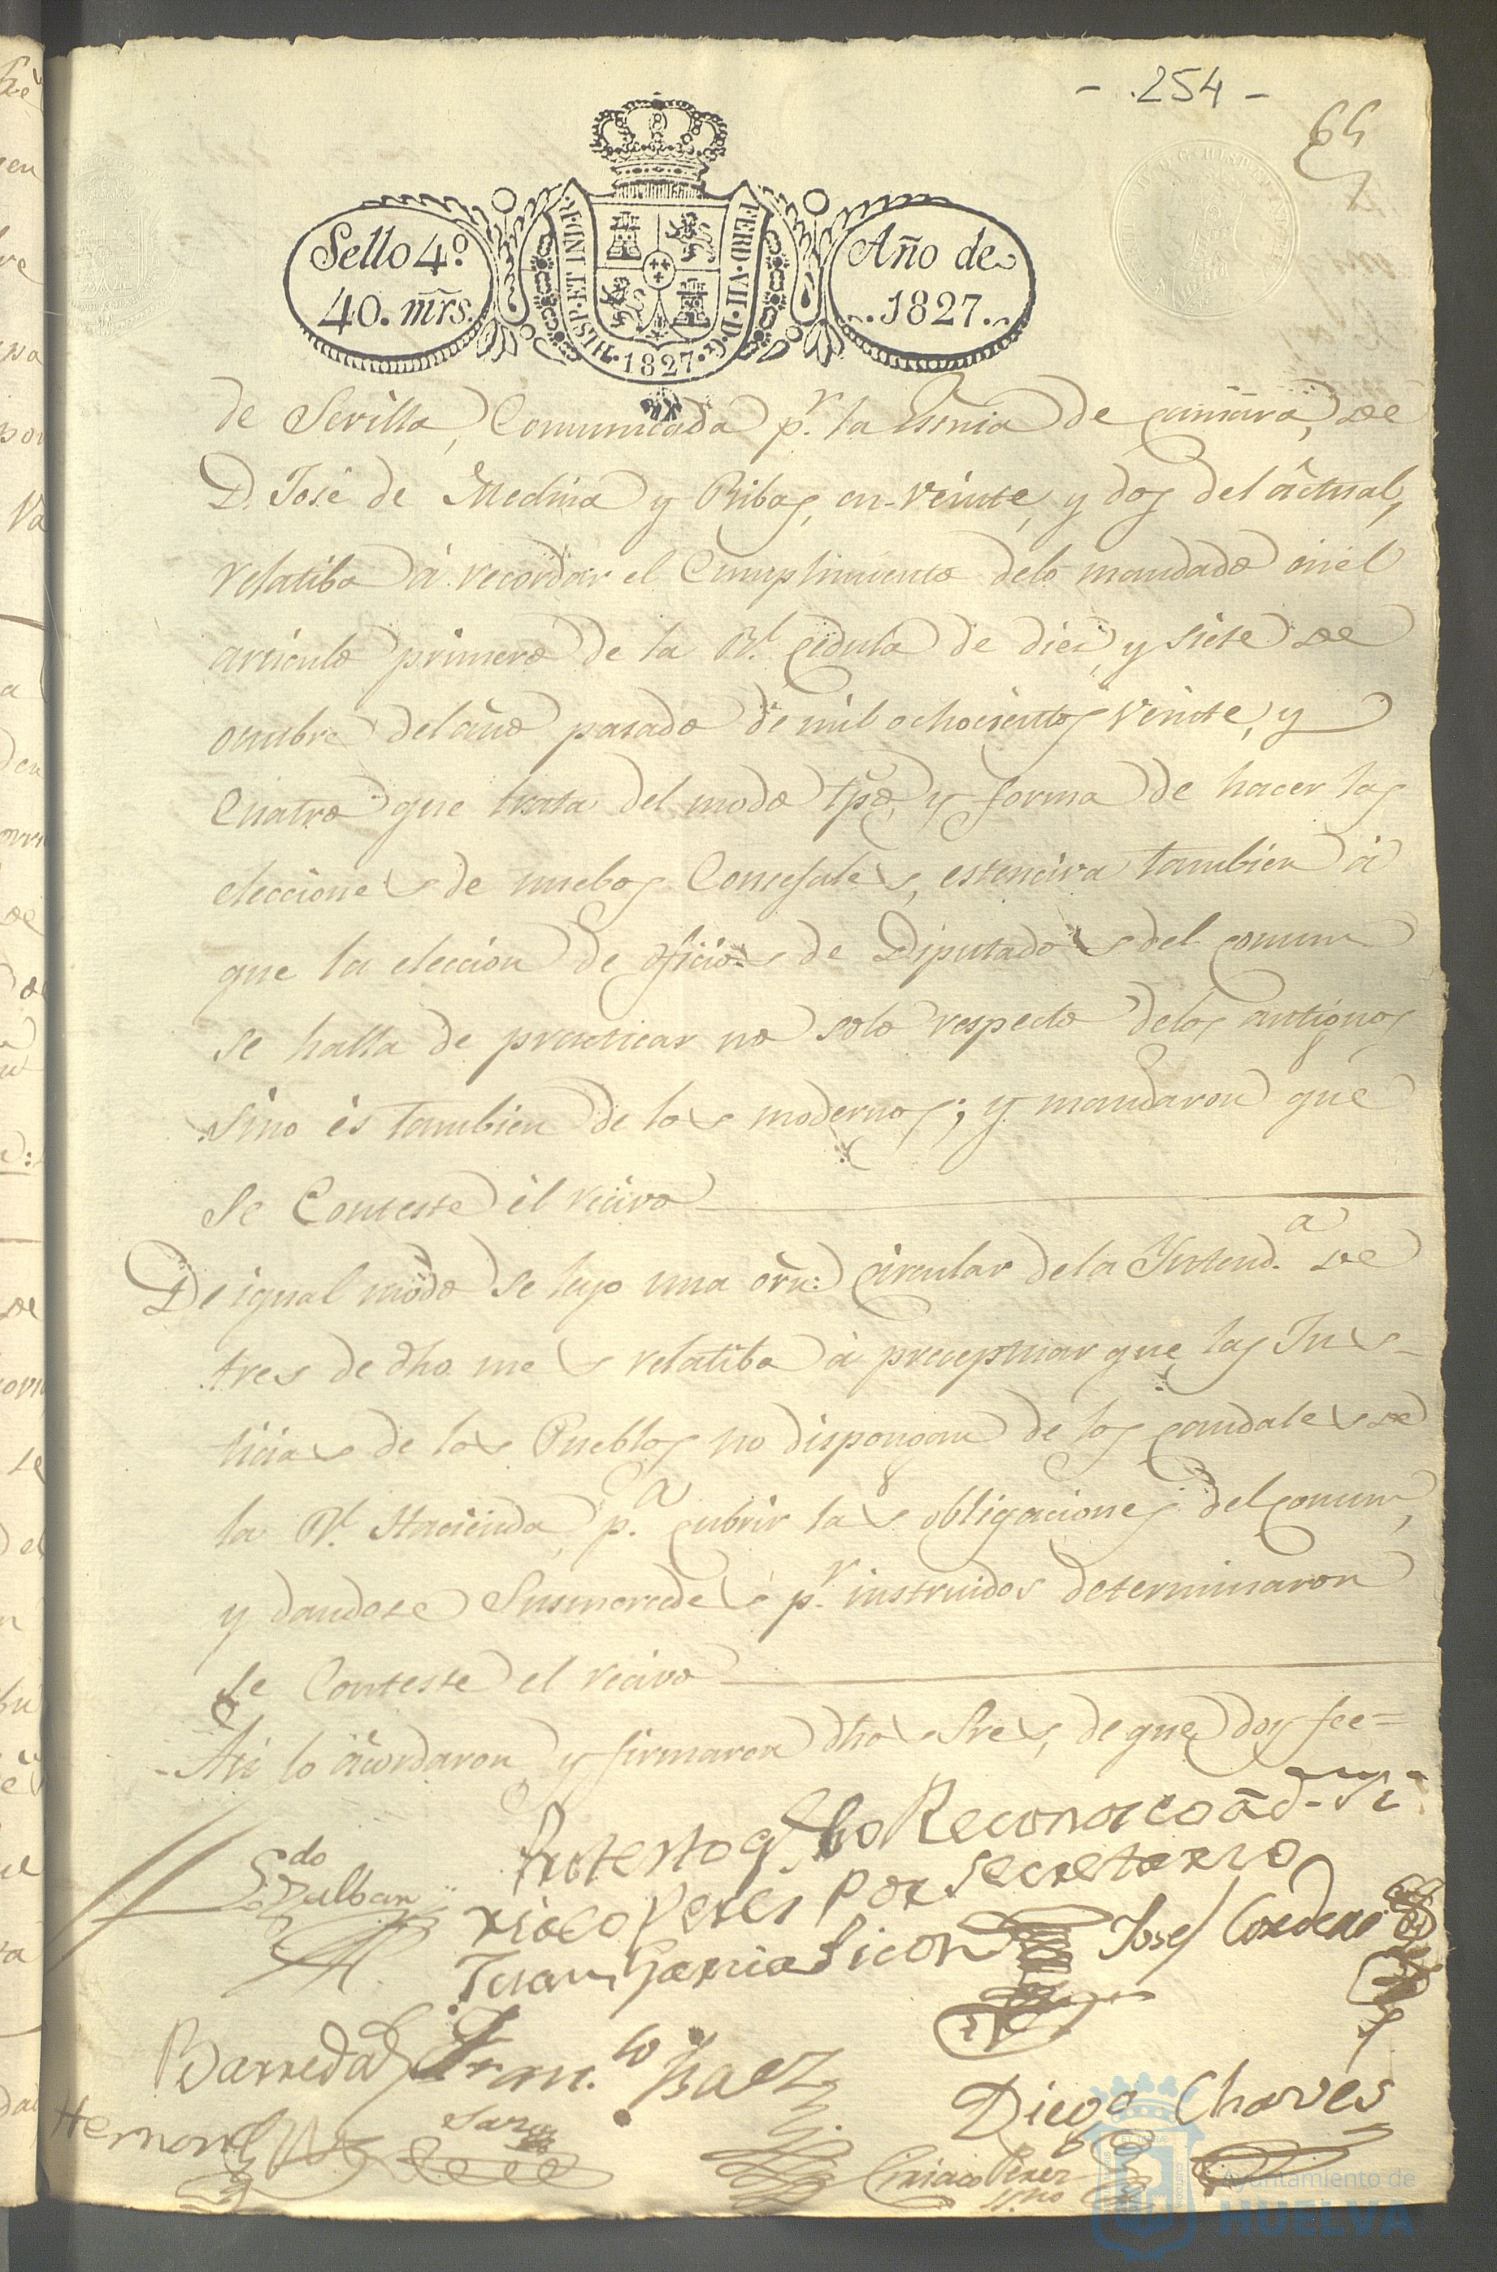 - .254 -
65
Sello 4º.
40. mrs.
HISP. ET IND. R.
FERD. VII. D. G.
.1827.
Año de
.1827.
de Sevilla, Comunicada p.r la Esnia de camara, de
D. José de Medina y Ribas, en veinte, y dos del actual,
relatiba á recordar el Cumplimiento delo mandado en el
articulo primero de la Rl. cedula de diez, y siete de
octubre del año pasado de mil ochocientos veinte, y
Cuatro que trata del modo tpō, y forma de hacer las
elecciones de nuebos Consejales, estenciva tambien á
que la eleccion de oficios de Diputados del comun
se halla de practicar no solo respecto delos antiguos
sino es tambien de los modernos; y mandaron que
se Conteste el recivo
De igual modo se leyo una orn: circular dela Yntend.a de
tres de dho mes relatiba á preceptuar que las Jus-
ticias de los Pueblos no dispongan de los caudales de
la Rl. Hacienda, p.a cubrir las obligaciones del comun,
y dandose Susmercedes p.r instruidos determinaron
se Conteste el recivo
Asi lo acordaron y firmaron dhos Sres, de que doy fee=
Protesto q. No Reconosco á d.
riaco Peres por secretario
Juan Garcia Picon
Josef Cordero
Barreda
Fran.co Baez
Diego Chaves
Hernand
Ciriaco Perez
Ss.no
Ayuntamiento de
HUELVA